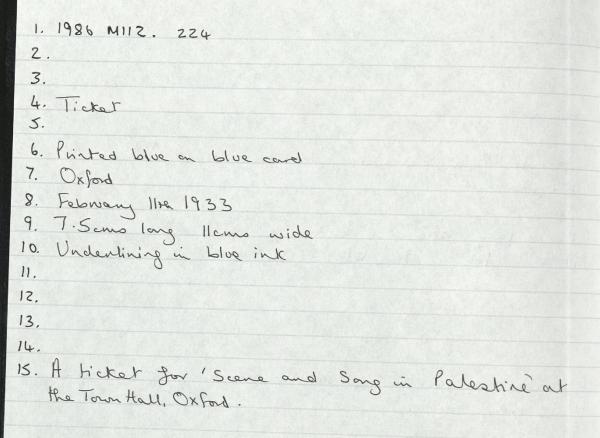 1. 1986 M112. 224
2.
3.
4. Ticket
5.
6. Printed blue on blue card
7. Oxford
8. February 11th 1933
9. 7.5cms long 11cms wide
10. Underlining in blue ink
11.
12.
13.
14.
15. A ticket for 'Scene and Song in Palestine' at
the Town Hall, Oxford.